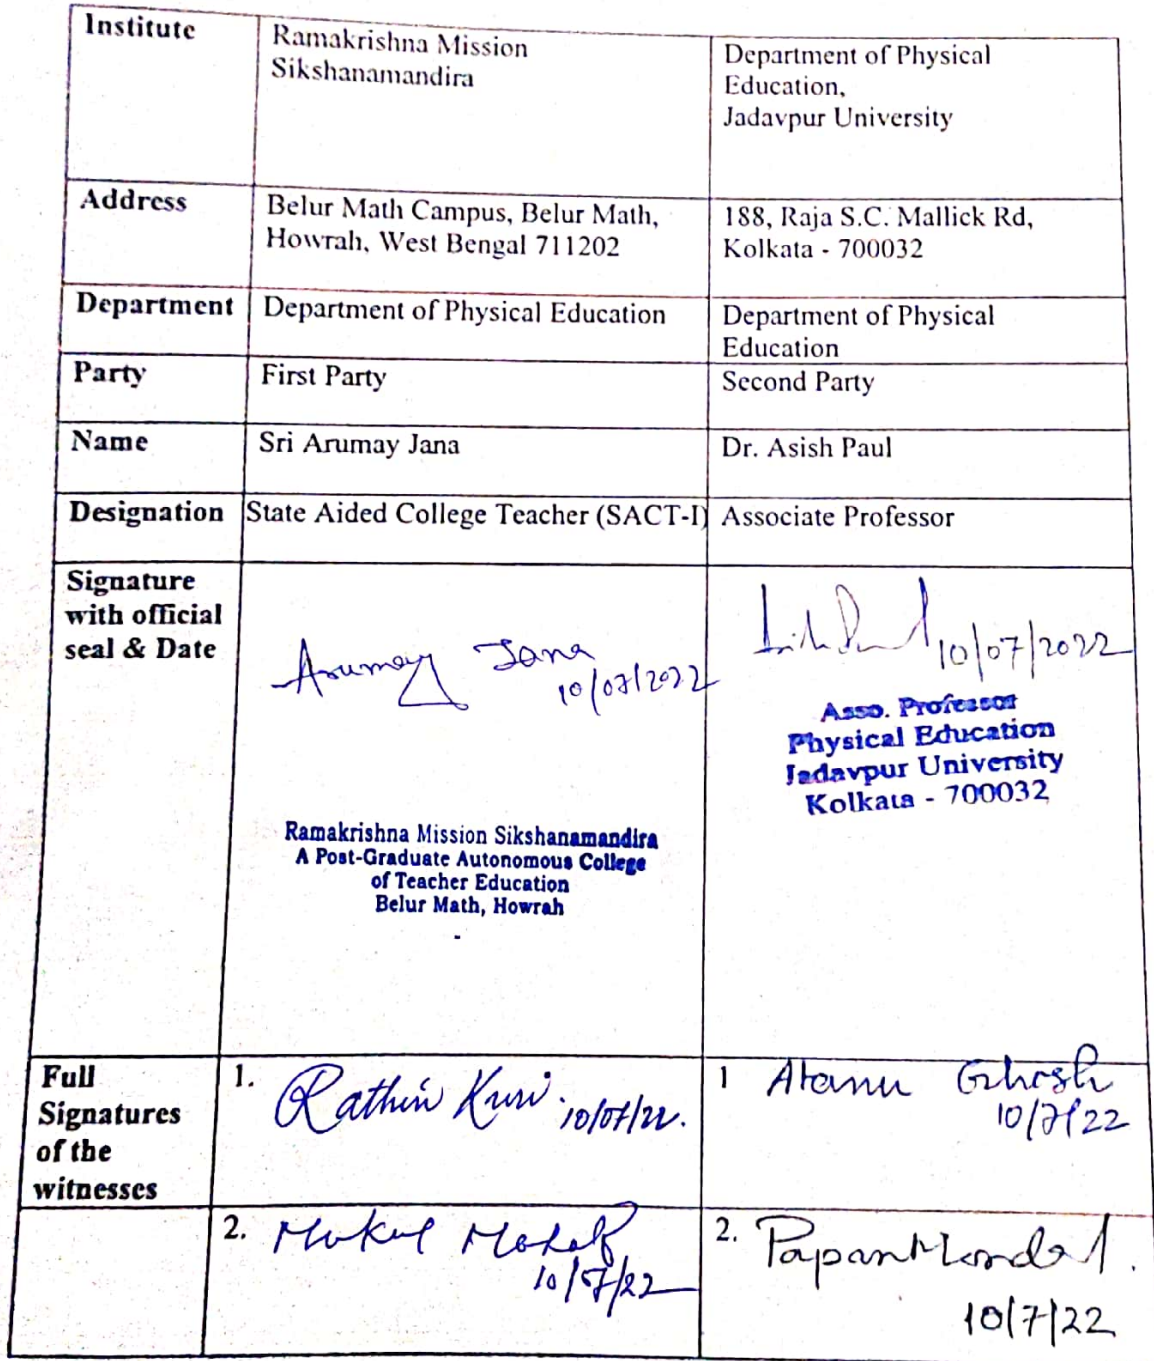 Institute
Ramakrishna Mission
Sikshanamandira
Department of Physical
Education,
Jadavpur University
Address
Belur Math Campus, Belur Math,
Howrah, West Bengal 711202
188, Raja S.C. Mallick Rd,
Kolkata - 700032
Department
Department of Physical Education
Department of Physical
Education
Party
First Party
Second Party
Name
Sri Arumay Jana
Dr. Asish Paul
Designation
State Aided College Teacher (SACT-I)
Associate Professor
Signature
with official
seal & Date
Arumay Jana
10/07/2022
Ramakrishna Mission Sikshanamandira
A Post-Graduate Autonomous College
of Teacher Education
Belur Math, Howrah
10/07/2022
Asso. Professor
Physical Education
Jadavpur University
Kolkata - 700032
Full
Signatures
of the
witnesses
1. Rathin Kuri. 10/07/22.
1 Atanu Ghosh
10/7/22
2. Mukul
10/7/22
2. Papan Mondal.
10/7/22